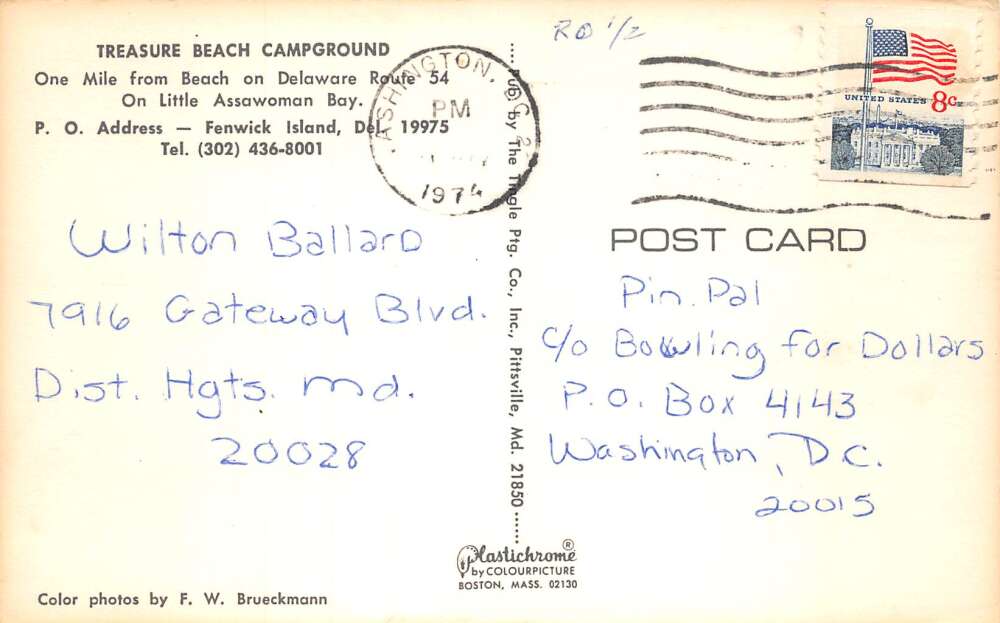 TREASURE BEACH CAMPGROUND
One Mile from Beach on Delaware Route 54
On Little Assawoman Bay.
P. O. Address — Fenwick Island, Del. 19975
Tel. (302) 436-8001
WASHINGTON, DC
PM
1974
RO 1/2
UNITED STATES 8c
Wilton Ballard
7916 Gateway Blvd.
Dist. Hgts. Md.
20028
Pub. by The Tingle Ptg. Co., Inc., Pittsville, Md. 21850
POST CARD
Pin Pal
c/o Bowling for Dollars
P.O. Box 4143
Washington, D.C.
20015
Plastichrome®
by COLOURPICTURE
BOSTON, MASS. 02130
Color photos by F. W. Brueckmann